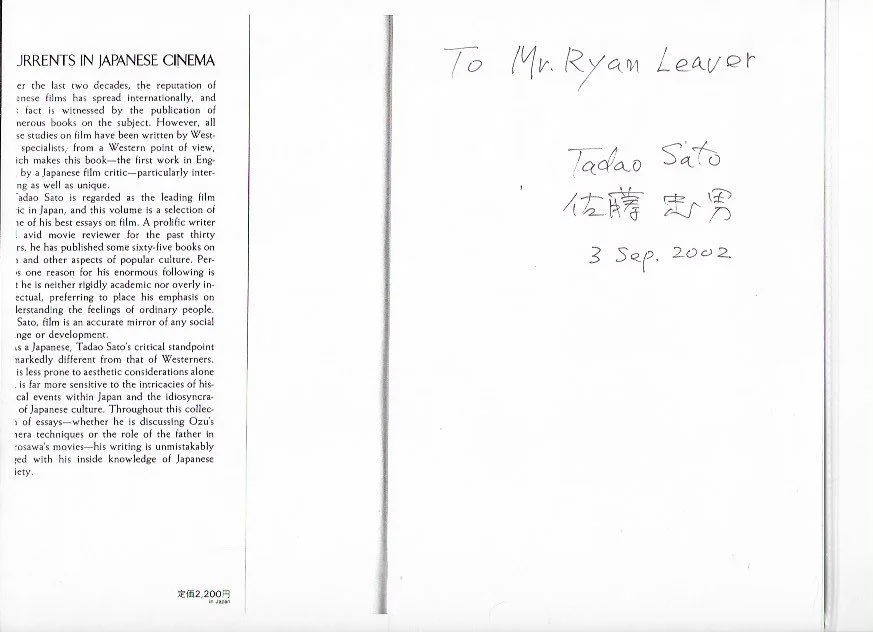 URRENTS IN JAPANESE CINEMA
er the last two decades, the reputation of
anese films has spread internationally, and
fact is witnessed by the publication of
nerous books on the subject. However, all
se studies on film have been written by West-
specialists, from a Western point of view,
ich makes this book—the first work in Eng-
by a Japanese film critic—particularly inter-
ng as well as unique.
adao Sato is regarded as the leading film
ic in Japan, and this volume is a selection of
ne of his best essays on film. A prolific writer
avid movie reviewer for the past thirty
rs, he has published some sixty-five books on
and other aspects of popular culture. Per-
s one reason for his enormous following is
t he is neither rigidly academic nor overly in-
ectual, preferring to place his emphasis on
lerstanding the feelings of ordinary people.
Sato, film is an accurate mirror of any social
nge or development.
s a Japanese, Tadao Sato's critical standpoint
narkedly different from that of Westerners.
is less prone to aesthetic considerations alone
is far more sensitive to the intricacies of his-
cal events within Japan and the idiosyncra-
of Japanese culture. Throughout this collec-
n of essays—whether he is discussing Ozu's
nera techniques or the role of the father in
rosawa's movies—his writing is unmistakably
ged with his inside knowledge of Japanese
iety.
定価2,200円
in Japan
To Mr. Ryan Leaver
Tadao Sato
佐藤 忠男
3 Sep. 2002